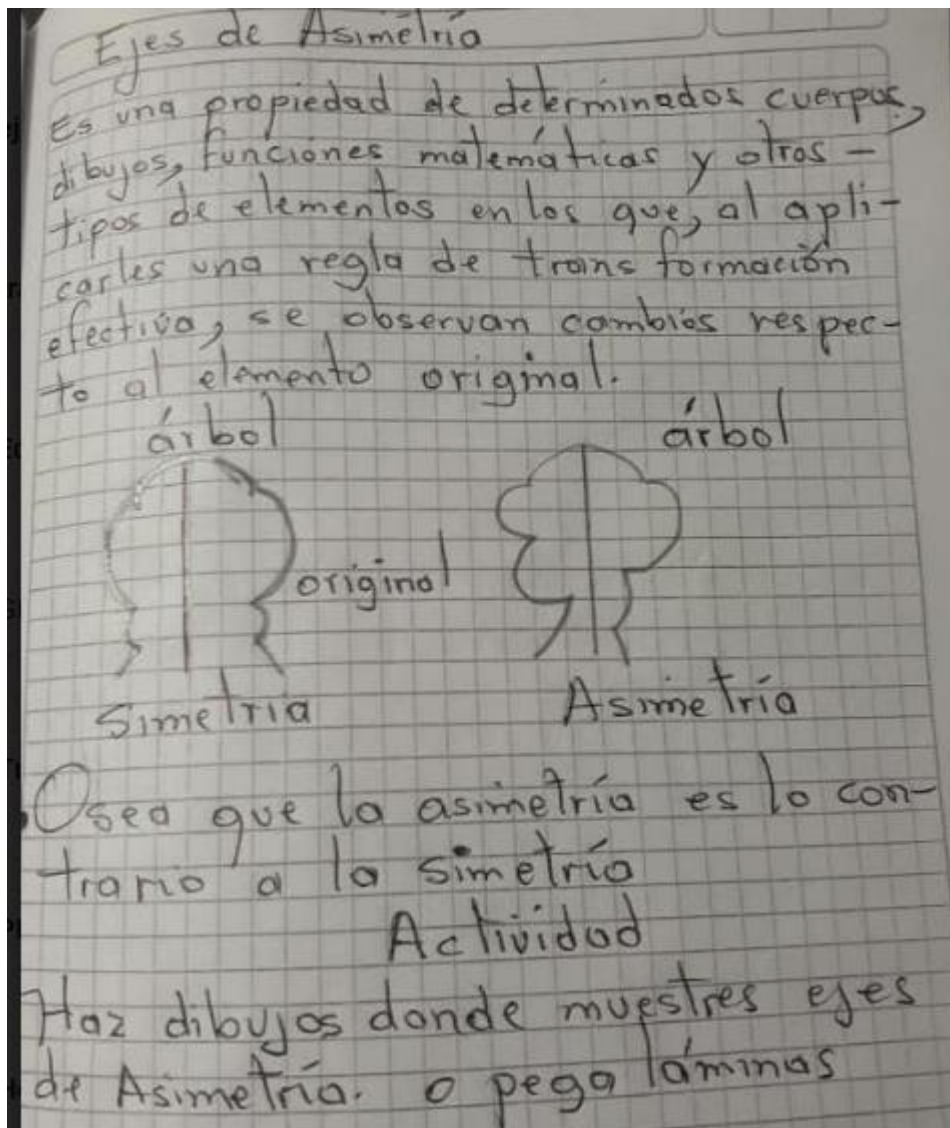 Ejes de Asimetría
Es una propiedad de determinados cuerpos,
dibujos, funciones matemáticas y otros -
tipos de elementos en los que, al apli-
carles una regla de transformación
efectiva, se observan cambios respec-
to al elemento original.
árbol árbol
original
Simetria Asimetría
Osea que la asimetría es lo con-
trario a la simetría
Actividad
Haz dibujos donde muestres ejes
de Asimetría. o pega láminas